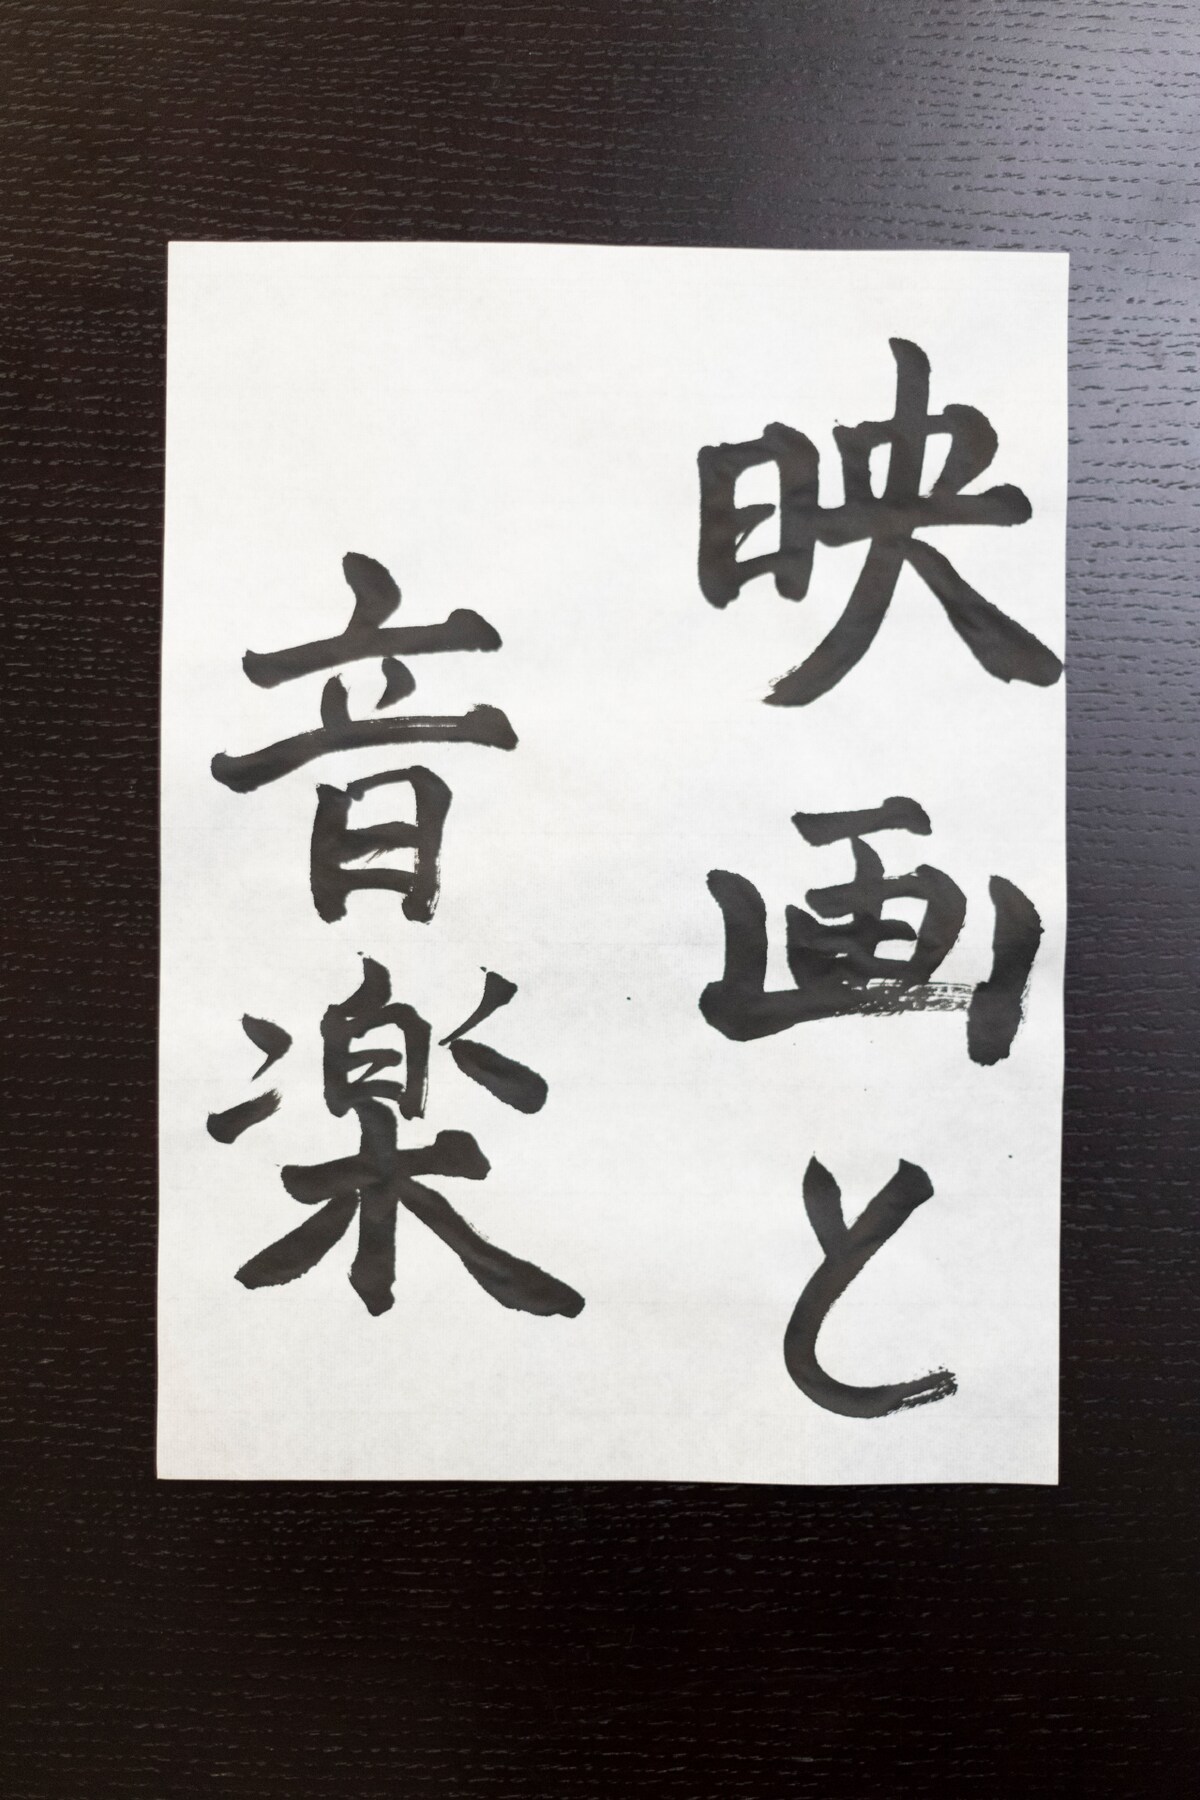 映画と
音楽